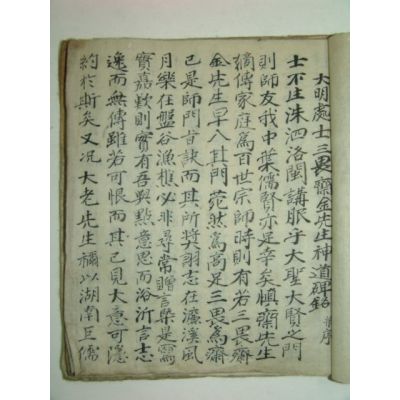 大明處士三畏齋金先生神道碑銘 並序
士不生洙泗洛閩講脈乎大聖大賢之門
則師友我中葉儒賢亦是幸矣愼齋先生
嫡傳家庭爲百世宗師時則有若三畏齋
金先生早入其門菀然爲高足三畏爲齋
已是師門旨訣而其所奬詡志在濂溪風
月樂在盤谷漁樵必非尋常贈言槩是寫
實嘉歎則實有吾與點意思而浴沂言志
逸而無傳雖若可恨而其已見大意可隱
約於斯矣又况大老先生稱以湖南巨儒